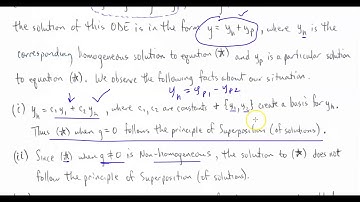 the solution of this ODE is in the form y = yh + yp, where yh is the
corresponding homogeneous solution to equation (*) and yp is a particular solution
to equation (*). We observe the following facts about our situation.
yh = yp1 - yp2
(i) yh = c1y1 + c2y2, where c1, c2 are constants + {y1, y2} create a basis for yh.
Thus (*) when g=0 follows the principle of Superposition (of solutions).
(ii) Since (*) when g≠0 is Non-homogeneous, the solution to (*) does not
follow the principle of Superposition (of solutions).